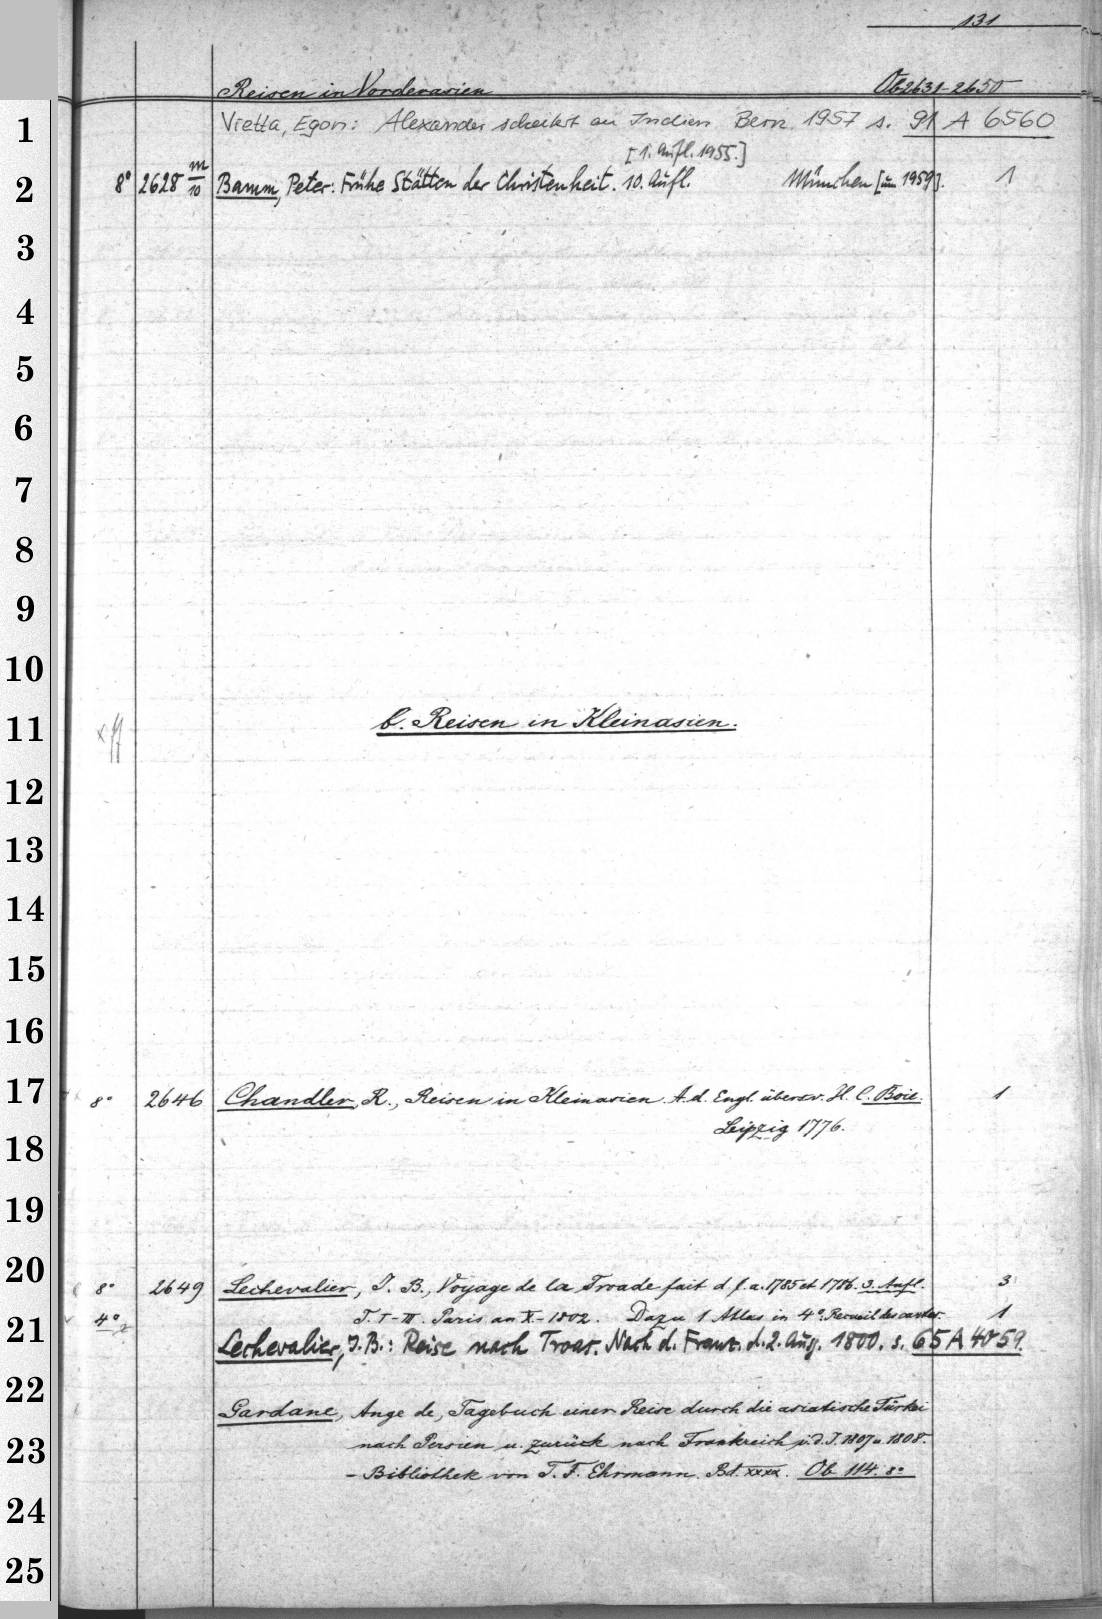 131
Reisen in Vorderasien Ob 2631-2650
1 Vietta, Egon: Alexander scheitert an Indien Bern 1957 s. 91 A 6560
[1. Aufl. 1955.]
2 8° 2628 m/10 Bamm, Peter: Frühe Stätten der Christenheit. 10. Aufl. München [um 1959]. 1
3
4
5
6
7
8
9
10
11 b. Reisen in Kleinasien.
12
13
14
15
16
17 8° 2646 Chandler, R., Reisen in Kleinasien. A. d. Engl. übers. v. H. C. Boie. 1
Leipzig 1776.
18
19
20 8° 2649 Lechevalier, J. B., Voyage de la Troade fait d. l. a. 1785 et 1786. 3. Aufl. 3
4° T. I-III. Paris an X.-1802. Dazu 1 Atlas in 4°: Recueil des cartes. 1
21 Lechevalier, J. B.: Reise nach Troas. Nach d. Franz. d. 2. Ausg. 1800. s. 65 A 4059.
22 Gardane, Ange de, Tagebuch einer Reise durch die asiatische Türkei
nach Persien u. zurück nach Frankreich i. d. J. 1807 u. 1808.
23 - Bibliothek von T. F. Ehrmann. Bd. XXXX. Ob 114. 8°
24
25